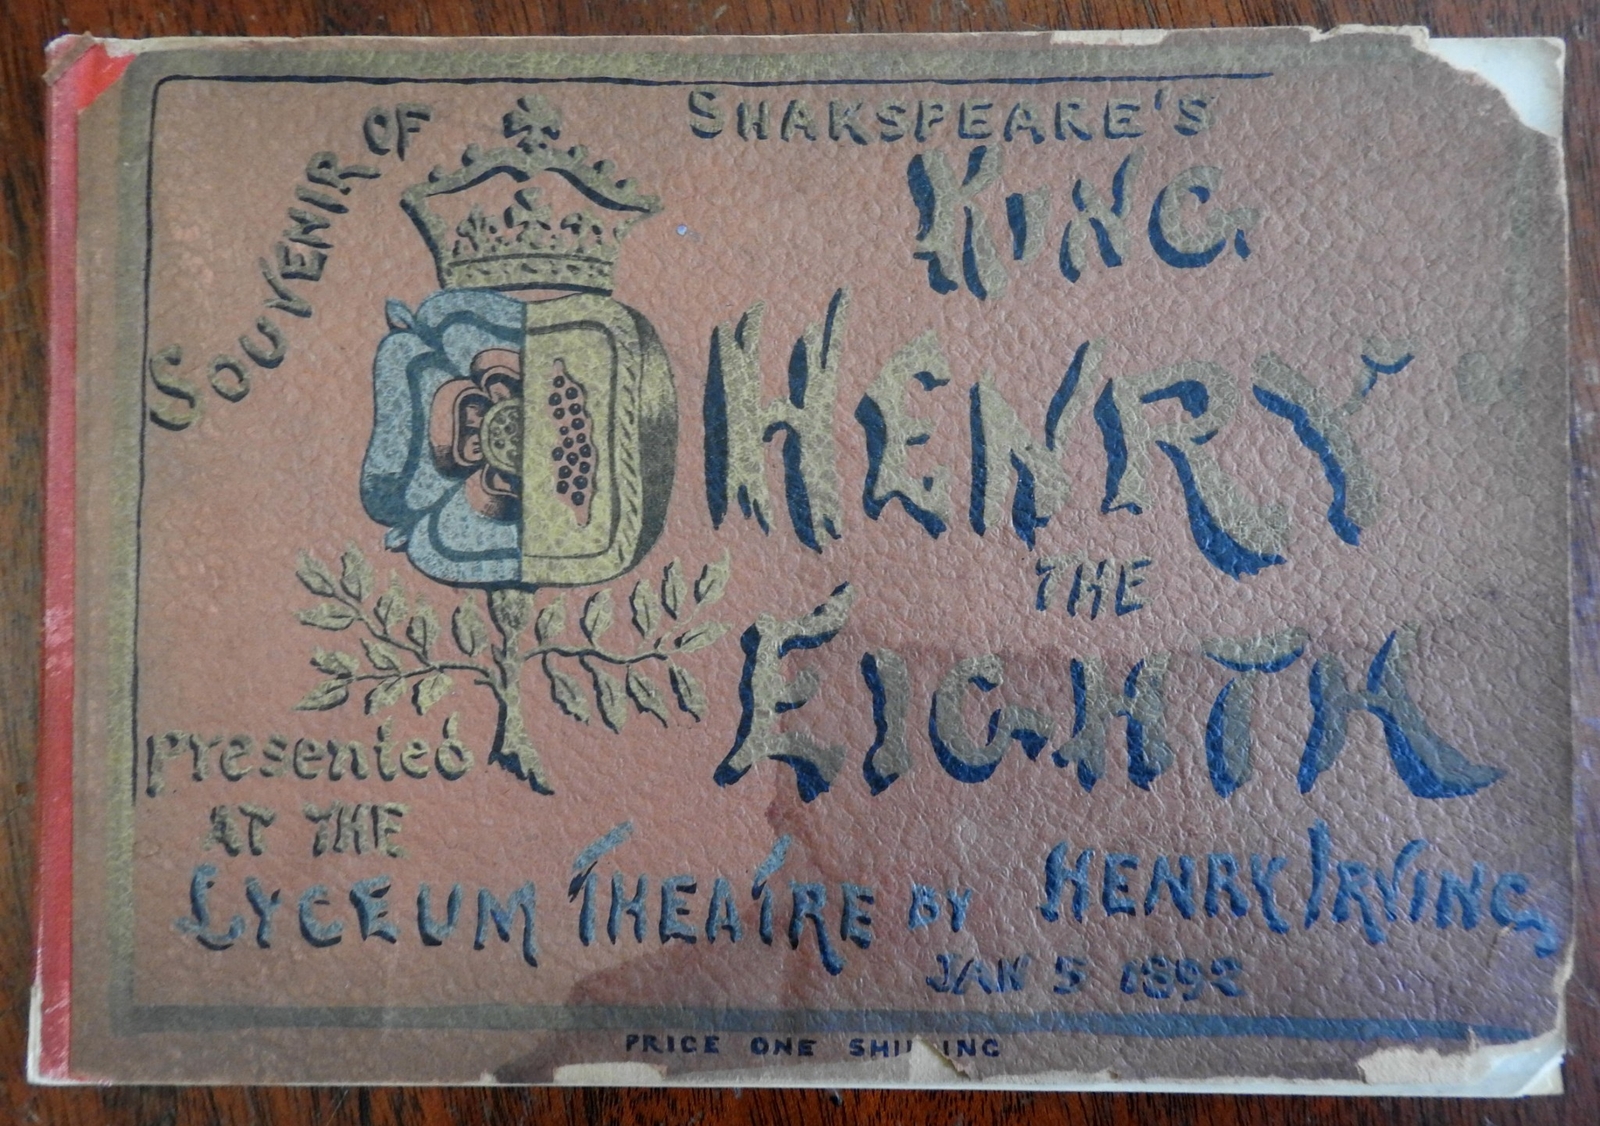 SOUVENIR OF
SHAKSPEARE'S
KING
HENRY
THE
EIGHTH
presented
AT THE
LYCEUM THEATRE BY HENRY IRVING
JAN 5 1892
PRICE ONE SHILLING